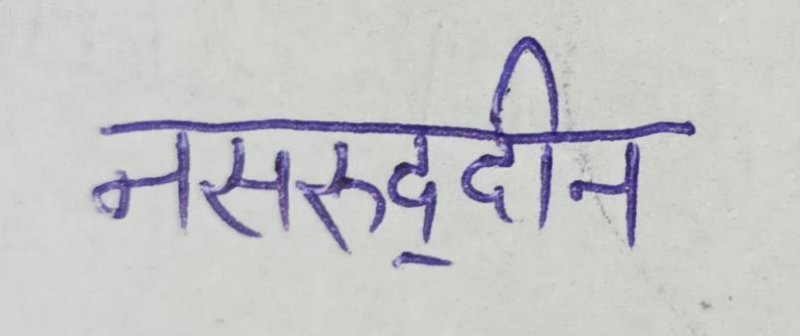 नसरुद्दीन